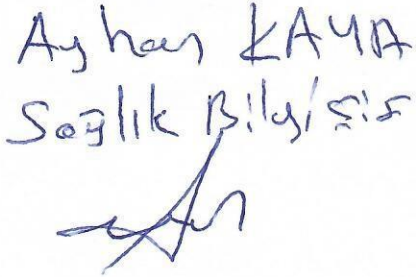 Ayhan KAYA
Sağlık Bilgisis